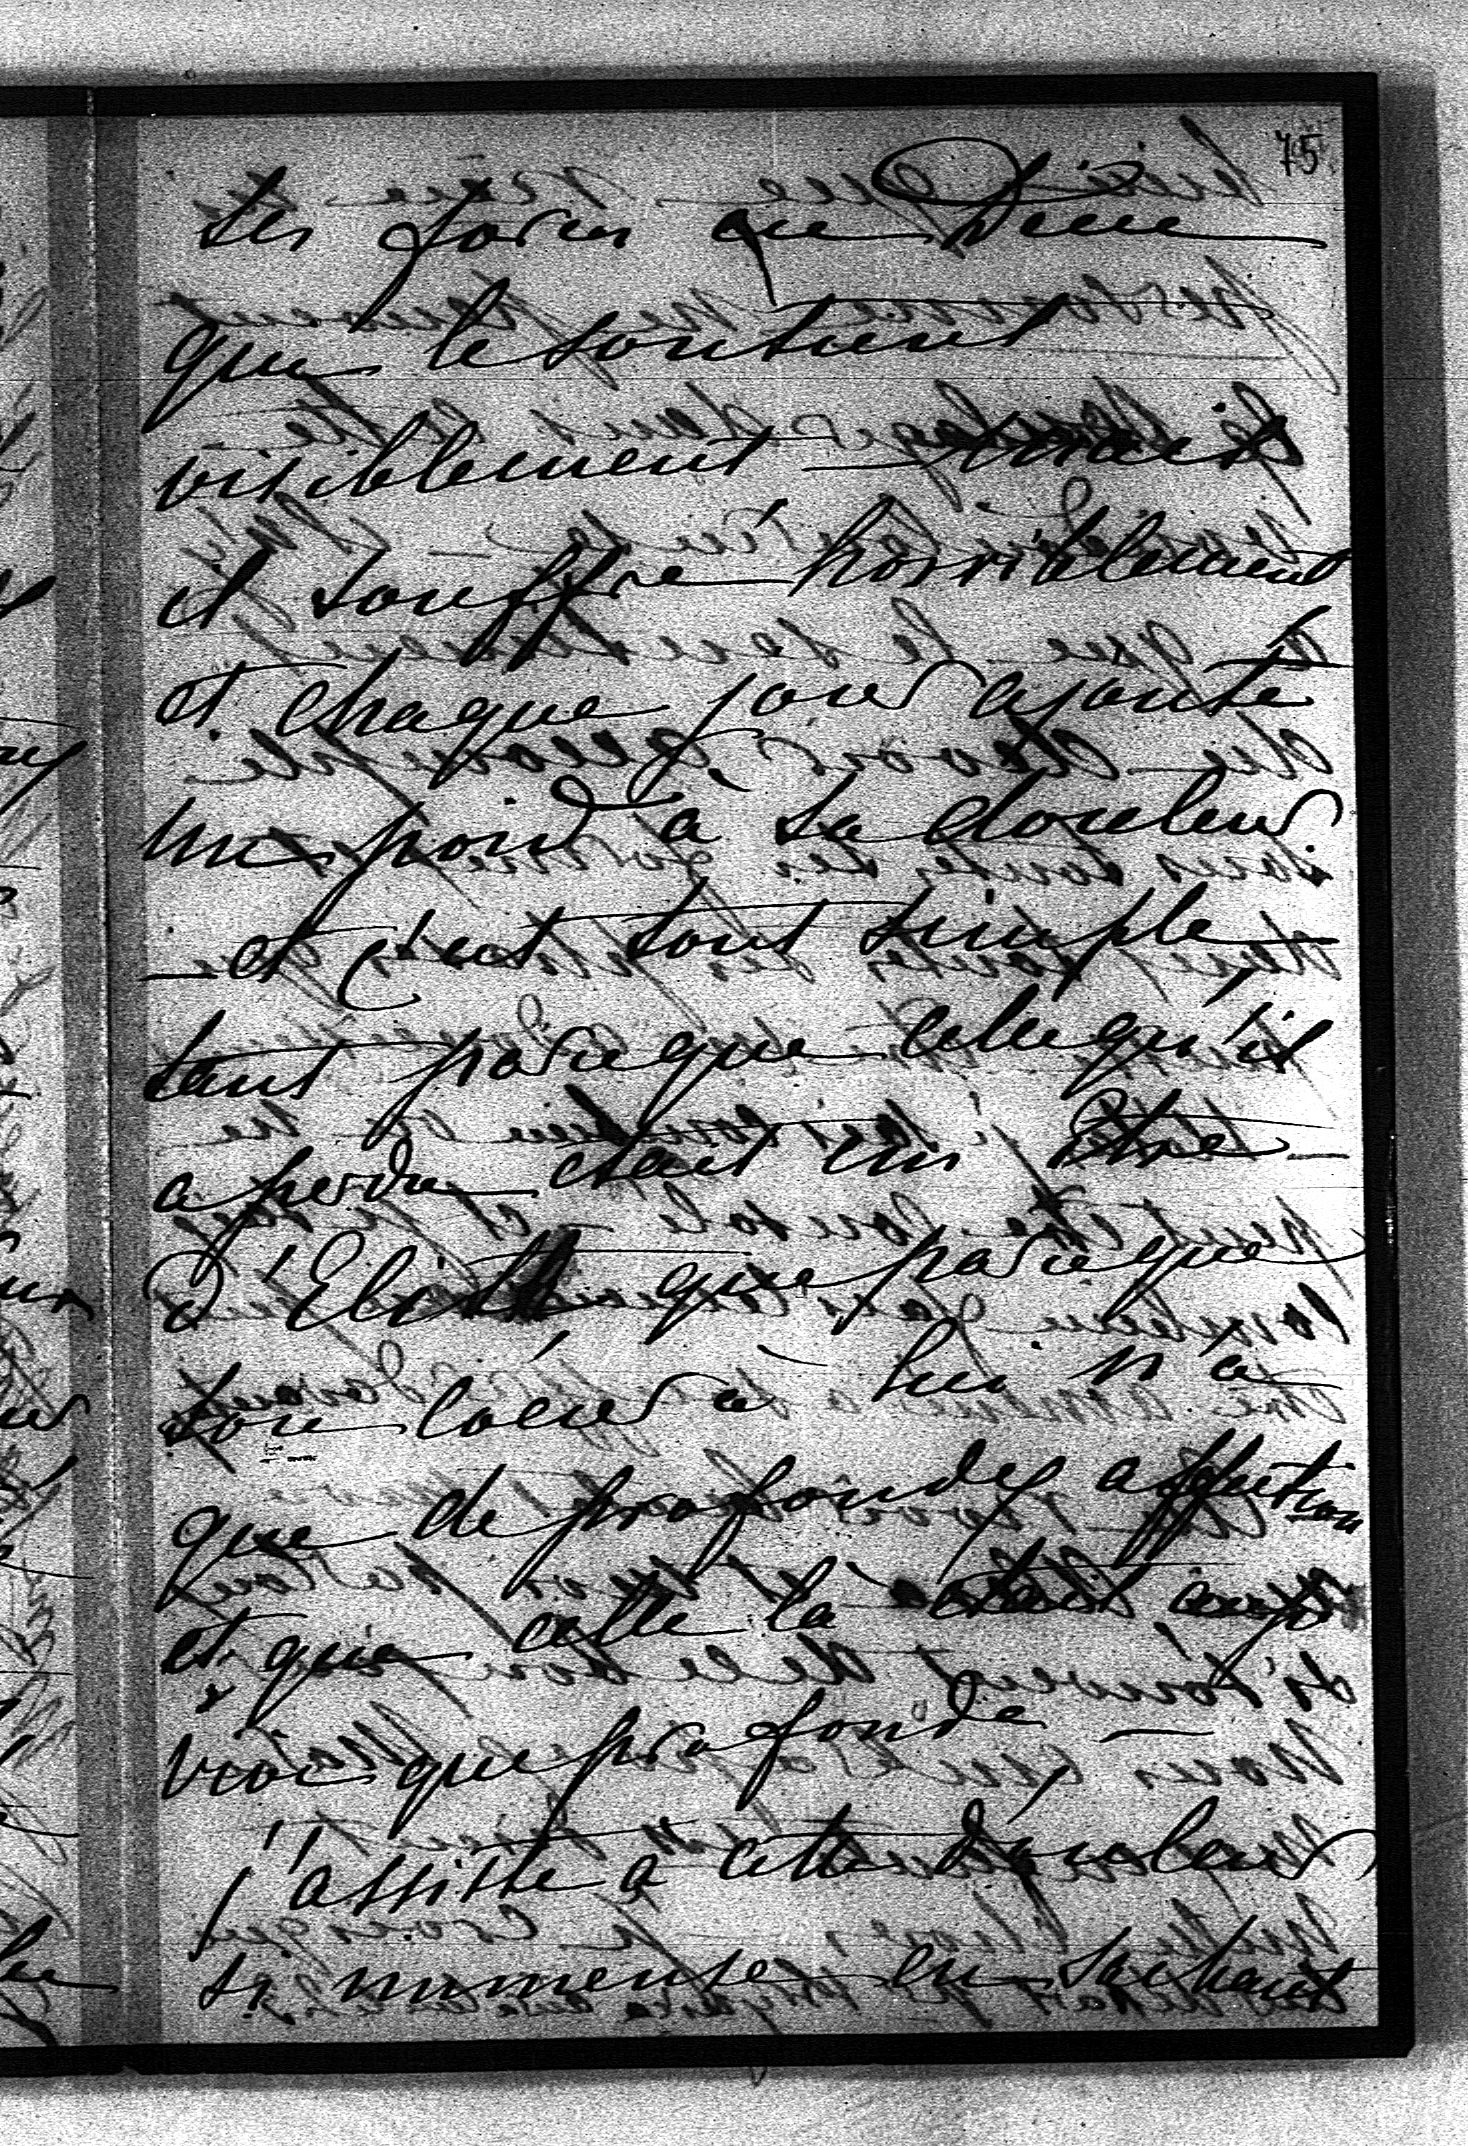 75
ses forces que Dieu
que le soutient
visiblement — mais
il souffre horriblement
et chaque jour ajoute
un poid a sa douleur
— et c'est tout simple,
tant parceque celle qu'il
a perdu etait un Etre
d'Elite que parceque
son coeur à lui n'a
que de profondes affection
et que celle la etait
vrai que profonde —
j'assiste a cette douleur
si immense en sachant